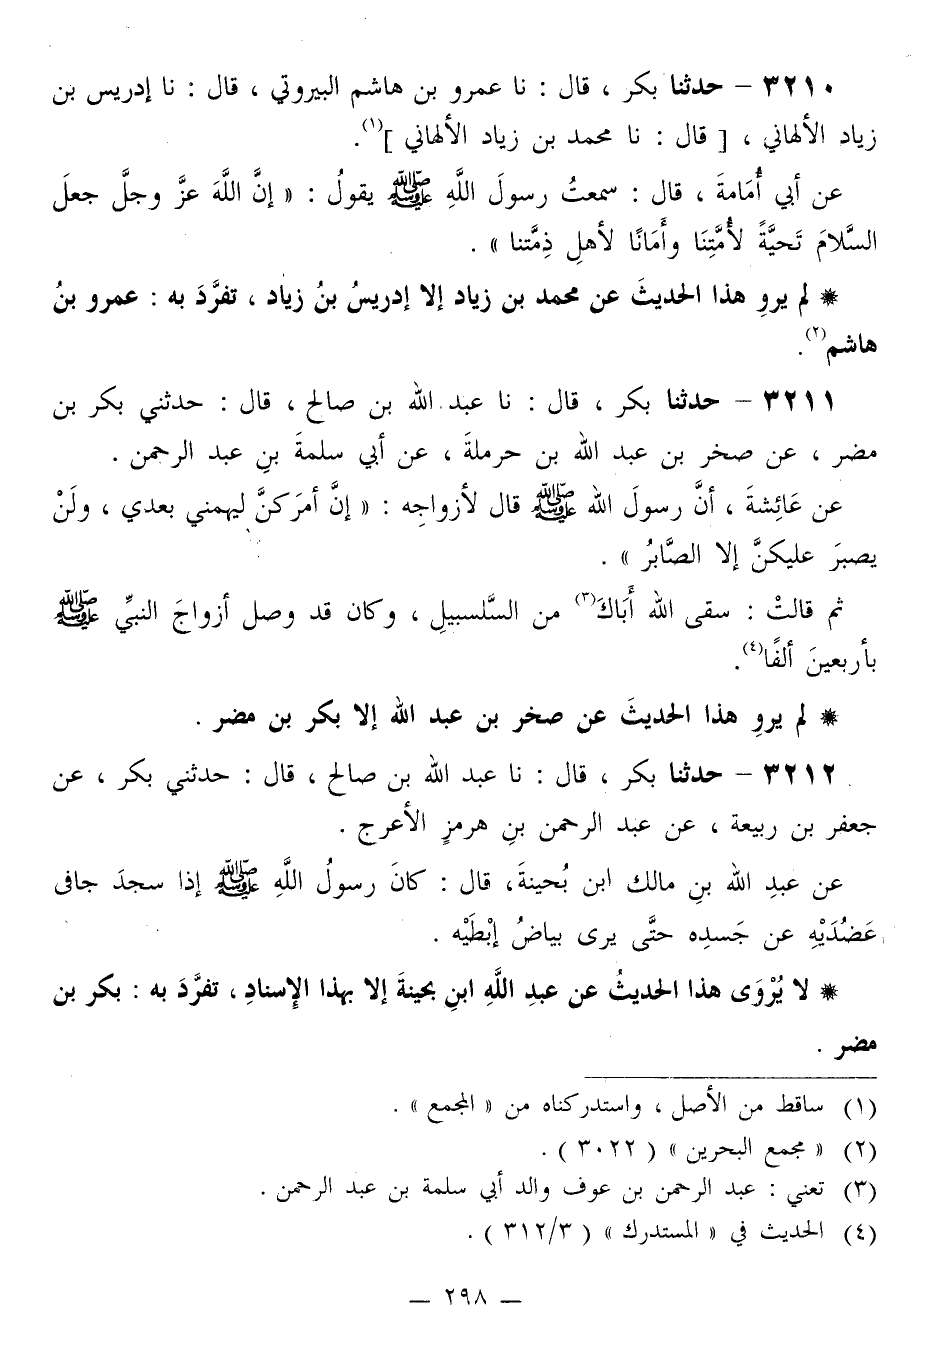 ٣٢١٠ – حدثنا بكر ، قال : نا عمرو بن هاشم البيروتي ، قال : نا إدريس بن
زياد الألهاني ، [ قال : نا محمد بن زياد الألهاني ](١).
عن أبي أُمَامةَ ، قال : سمعتُ رسولَ اللَّهِ ﷺ يقولُ : « إنَّ اللَّهَ عزَّ وجلَّ جعلَ
السَّلامَ تَحيَّةً لأُمَّتِنَا وأَمَانًا لأهلِ ذِمَّتنا » .
* لم يروِ هذا الحديثَ عن محمد بن زياد إلا إدريسُ بنُ زياد ، تفرَّدَ به : عمرو بنُ
هاشم(٢).
٣٢١١ – حدثنا بكر ، قال : نا عبد الله بن صالح ، قال : حدثني بكر بن
مضر ، عن صخر بن عبد الله بن حرملةَ ، عن أبي سلمةَ بنِ عبد الرحمن .
عن عَائِشةَ ، أنَّ رسولَ الله ﷺ قال لأزواجِه : « إنَّ أمرَكنَّ ليهمني بعدي ، ولَنْ
يصبرَ عليكنَّ إلا الصَّابرُ » .
ثم قالتْ : سقى الله أَبَاكَ(٣) من السَّلسبيلِ ، وكان قد وصل أزواجَ النبيِّ ﷺ
بأربعينَ ألفًا(٤).
* لم يروِ هذا الحديثَ عن صخر بن عبد الله إلا بكر بن مضر .
٣٢١٢ – حدثنا بكر ، قال : نا عبد الله بن صالح ، قال : حدثني بكر ، عن
جعفر بن ربيعة ، عن عبد الرحمن بنِ هرمزٍ الأعرج .
عن عبدِ الله بنِ مالك ابن بُحينةَ، قال : كانَ رسولُ اللَّهِ ﷺ إذا سجدَ جافى
عَضُدَيْهِ عن جَسدِه حتَّى يرى بياضُ إبْطَيْه .
* لا يُرْوَى هذا الحديثُ عن عبدِ اللَّهِ ابنِ بحينةَ إلا بهذا الإسنادِ ، تفرَّدَ به : بكر بن
مضر .
(١) ساقط من الأصل ، واستدركناه من « المجمع » .
(٢) « مجمع البحرين » ( ٣٠٢٢ ) .
(٣) تعني : عبد الرحمن بن عوف والد أبي سلمة بن عبد الرحمن .
(٤) الحديث في « المستدرك » ( ٣١٢/٣ ) .
– ٢٩٨ –